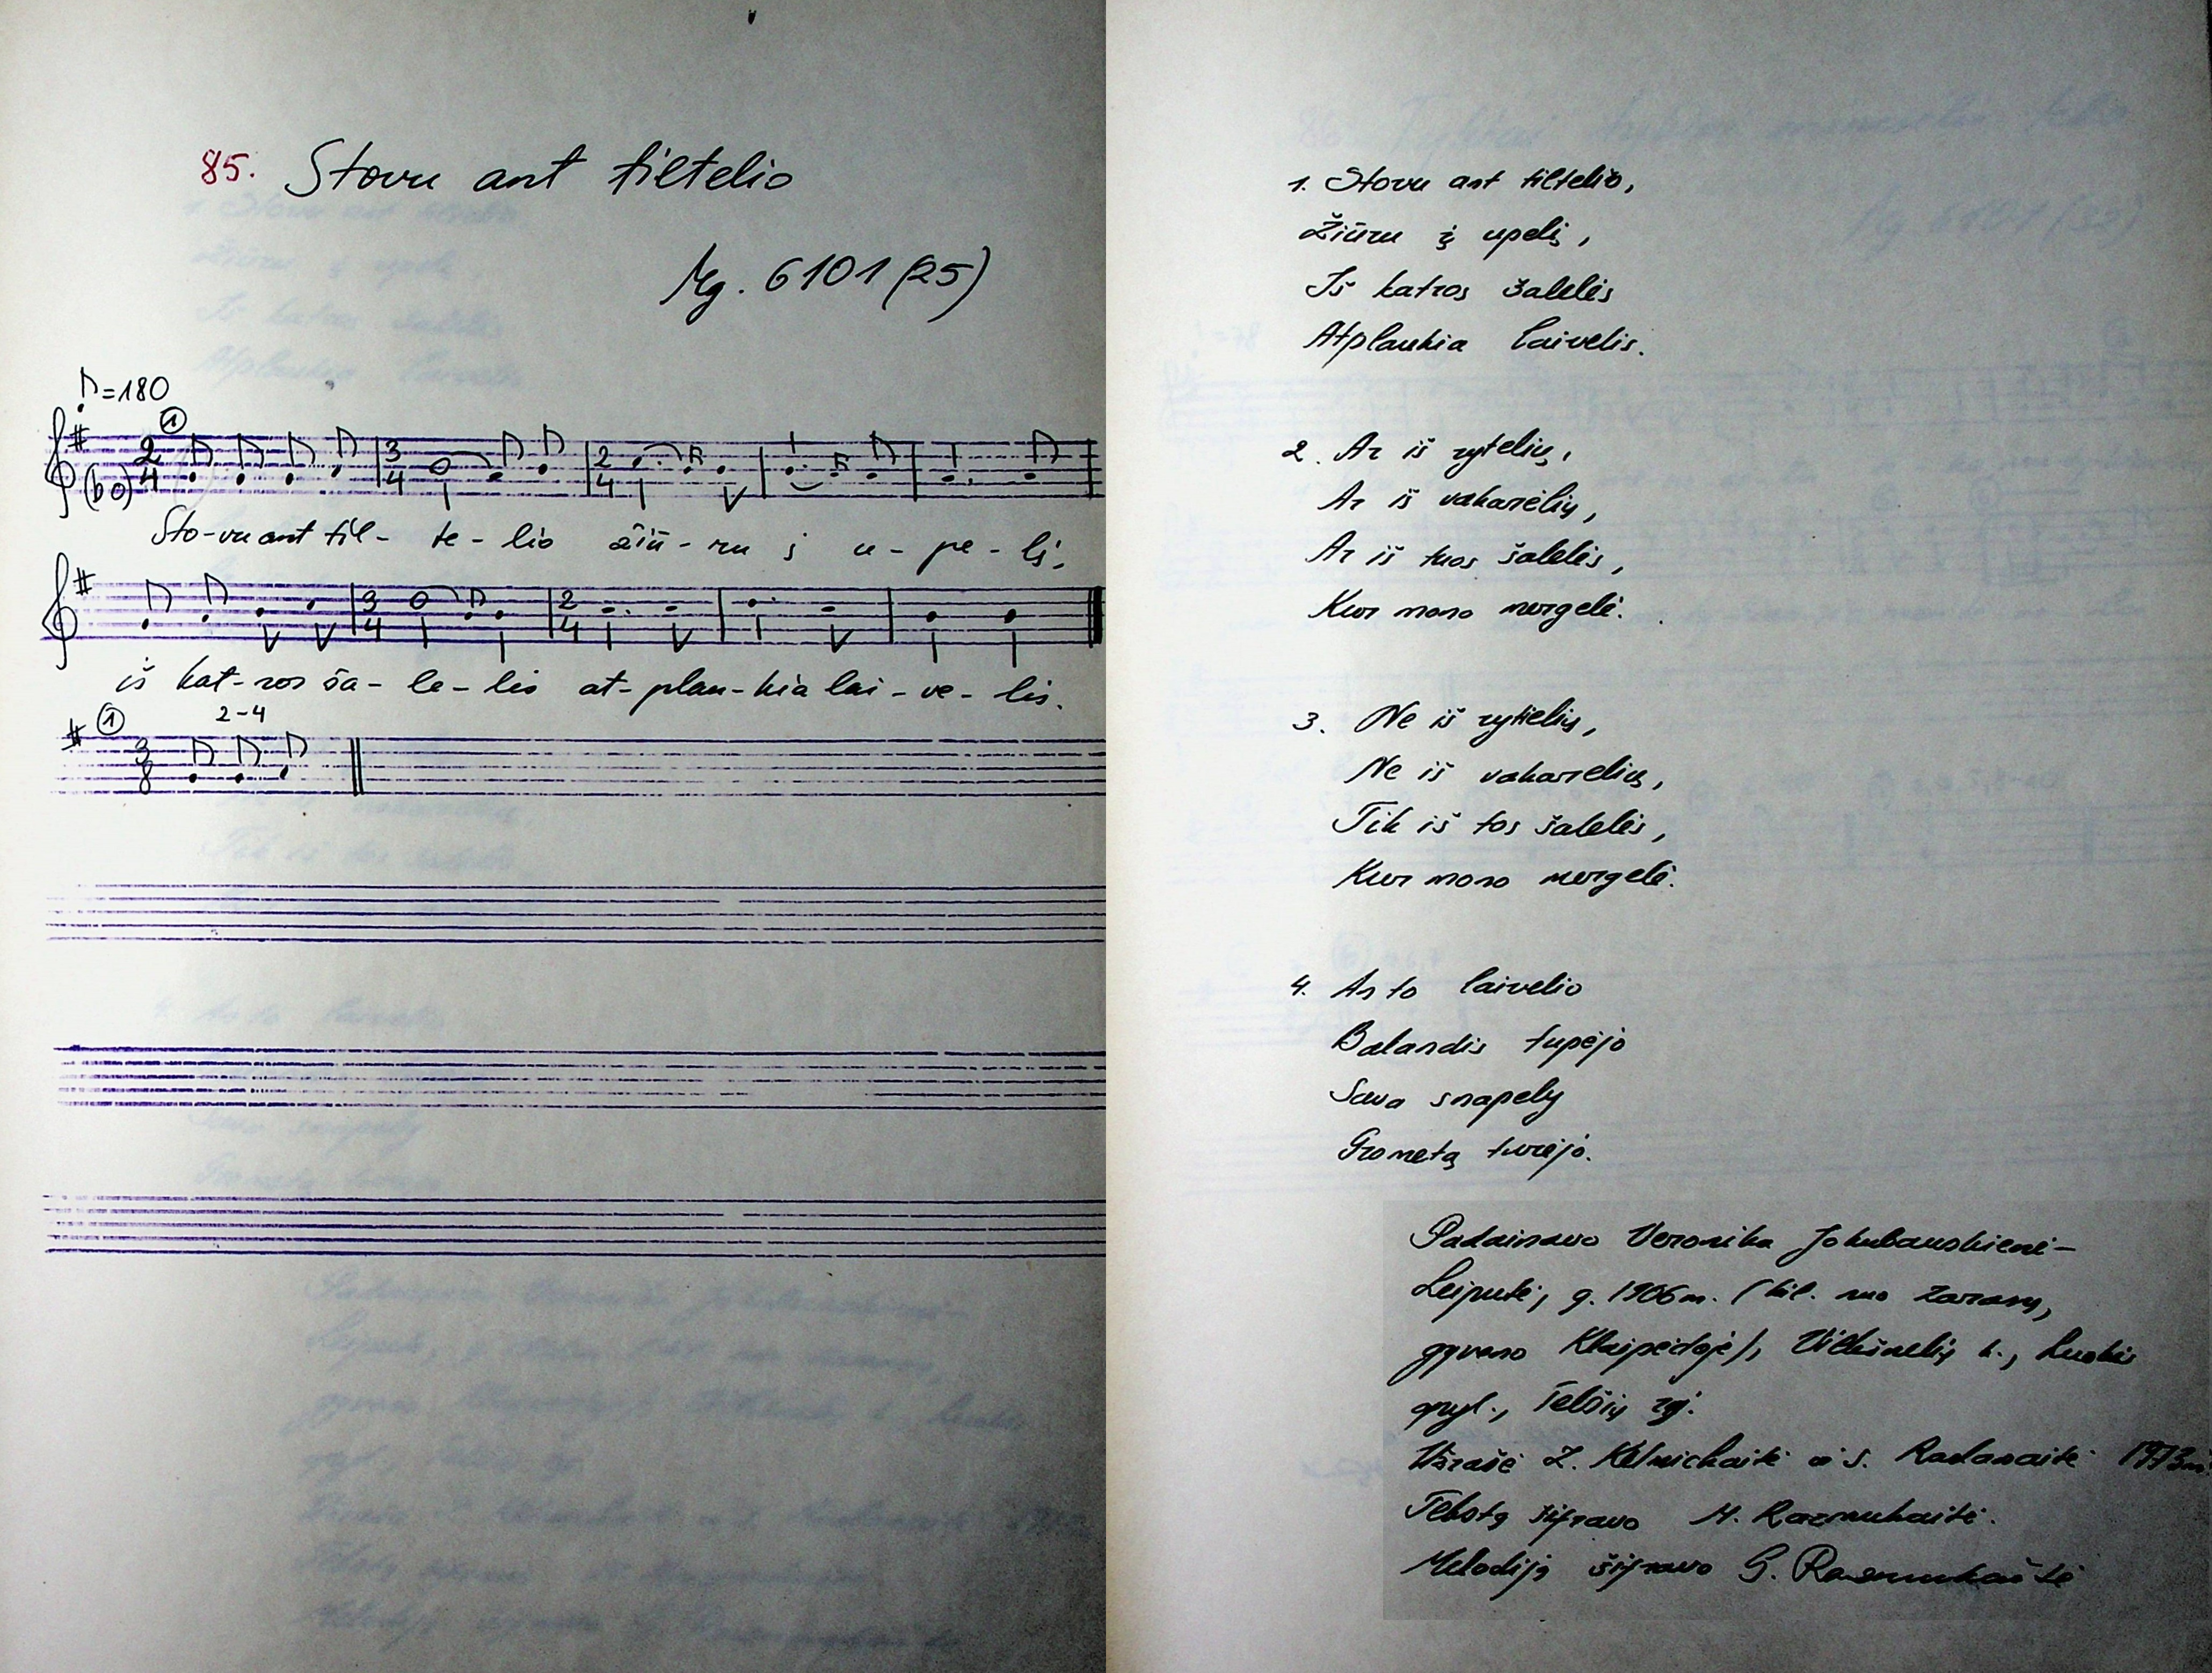 85. Stovu ant tiltelio
Mg. 6101 (25)
♪=180
①
2/4 3/4 2/4
(b o)
Sto-vu ant til- te-lio žiū-ru į u-pe-lį,
3/4 2/4
iš kat-ros ša-le-lės at-plau-kia lai-ve-lis.
① 2-4
3/8
1. Stovu ant tiltelio,
Žiūru į upelį,
Iš katros šalelės
Atplaukia laivelis.
2. Ar iš rytelių,
Ar iš vakarėlių,
Ar iš tuos šalelės,
Kur mano mergelė.
3. Ne iš rytielių,
Ne iš vakarelių,
Tik iš tos šalelės,
Kur mano mergelė.
4. An to laivelio
Balandis tupėjo
Sava snapely
Gromatą turėjo.
Padainavo Veronika Jakubauskienė-
Leiputė, g. 1906 m. (kil. nuo Zarasų,
gyveno Klaipėdoje), k., Luokės
apyl., Telšių rj.
Užrašė Z. ir S. Radanaitė 1973 m.
Tekstą šifravo M. Razmukaitė.
Melodiją šifravo G. Razmukaitė